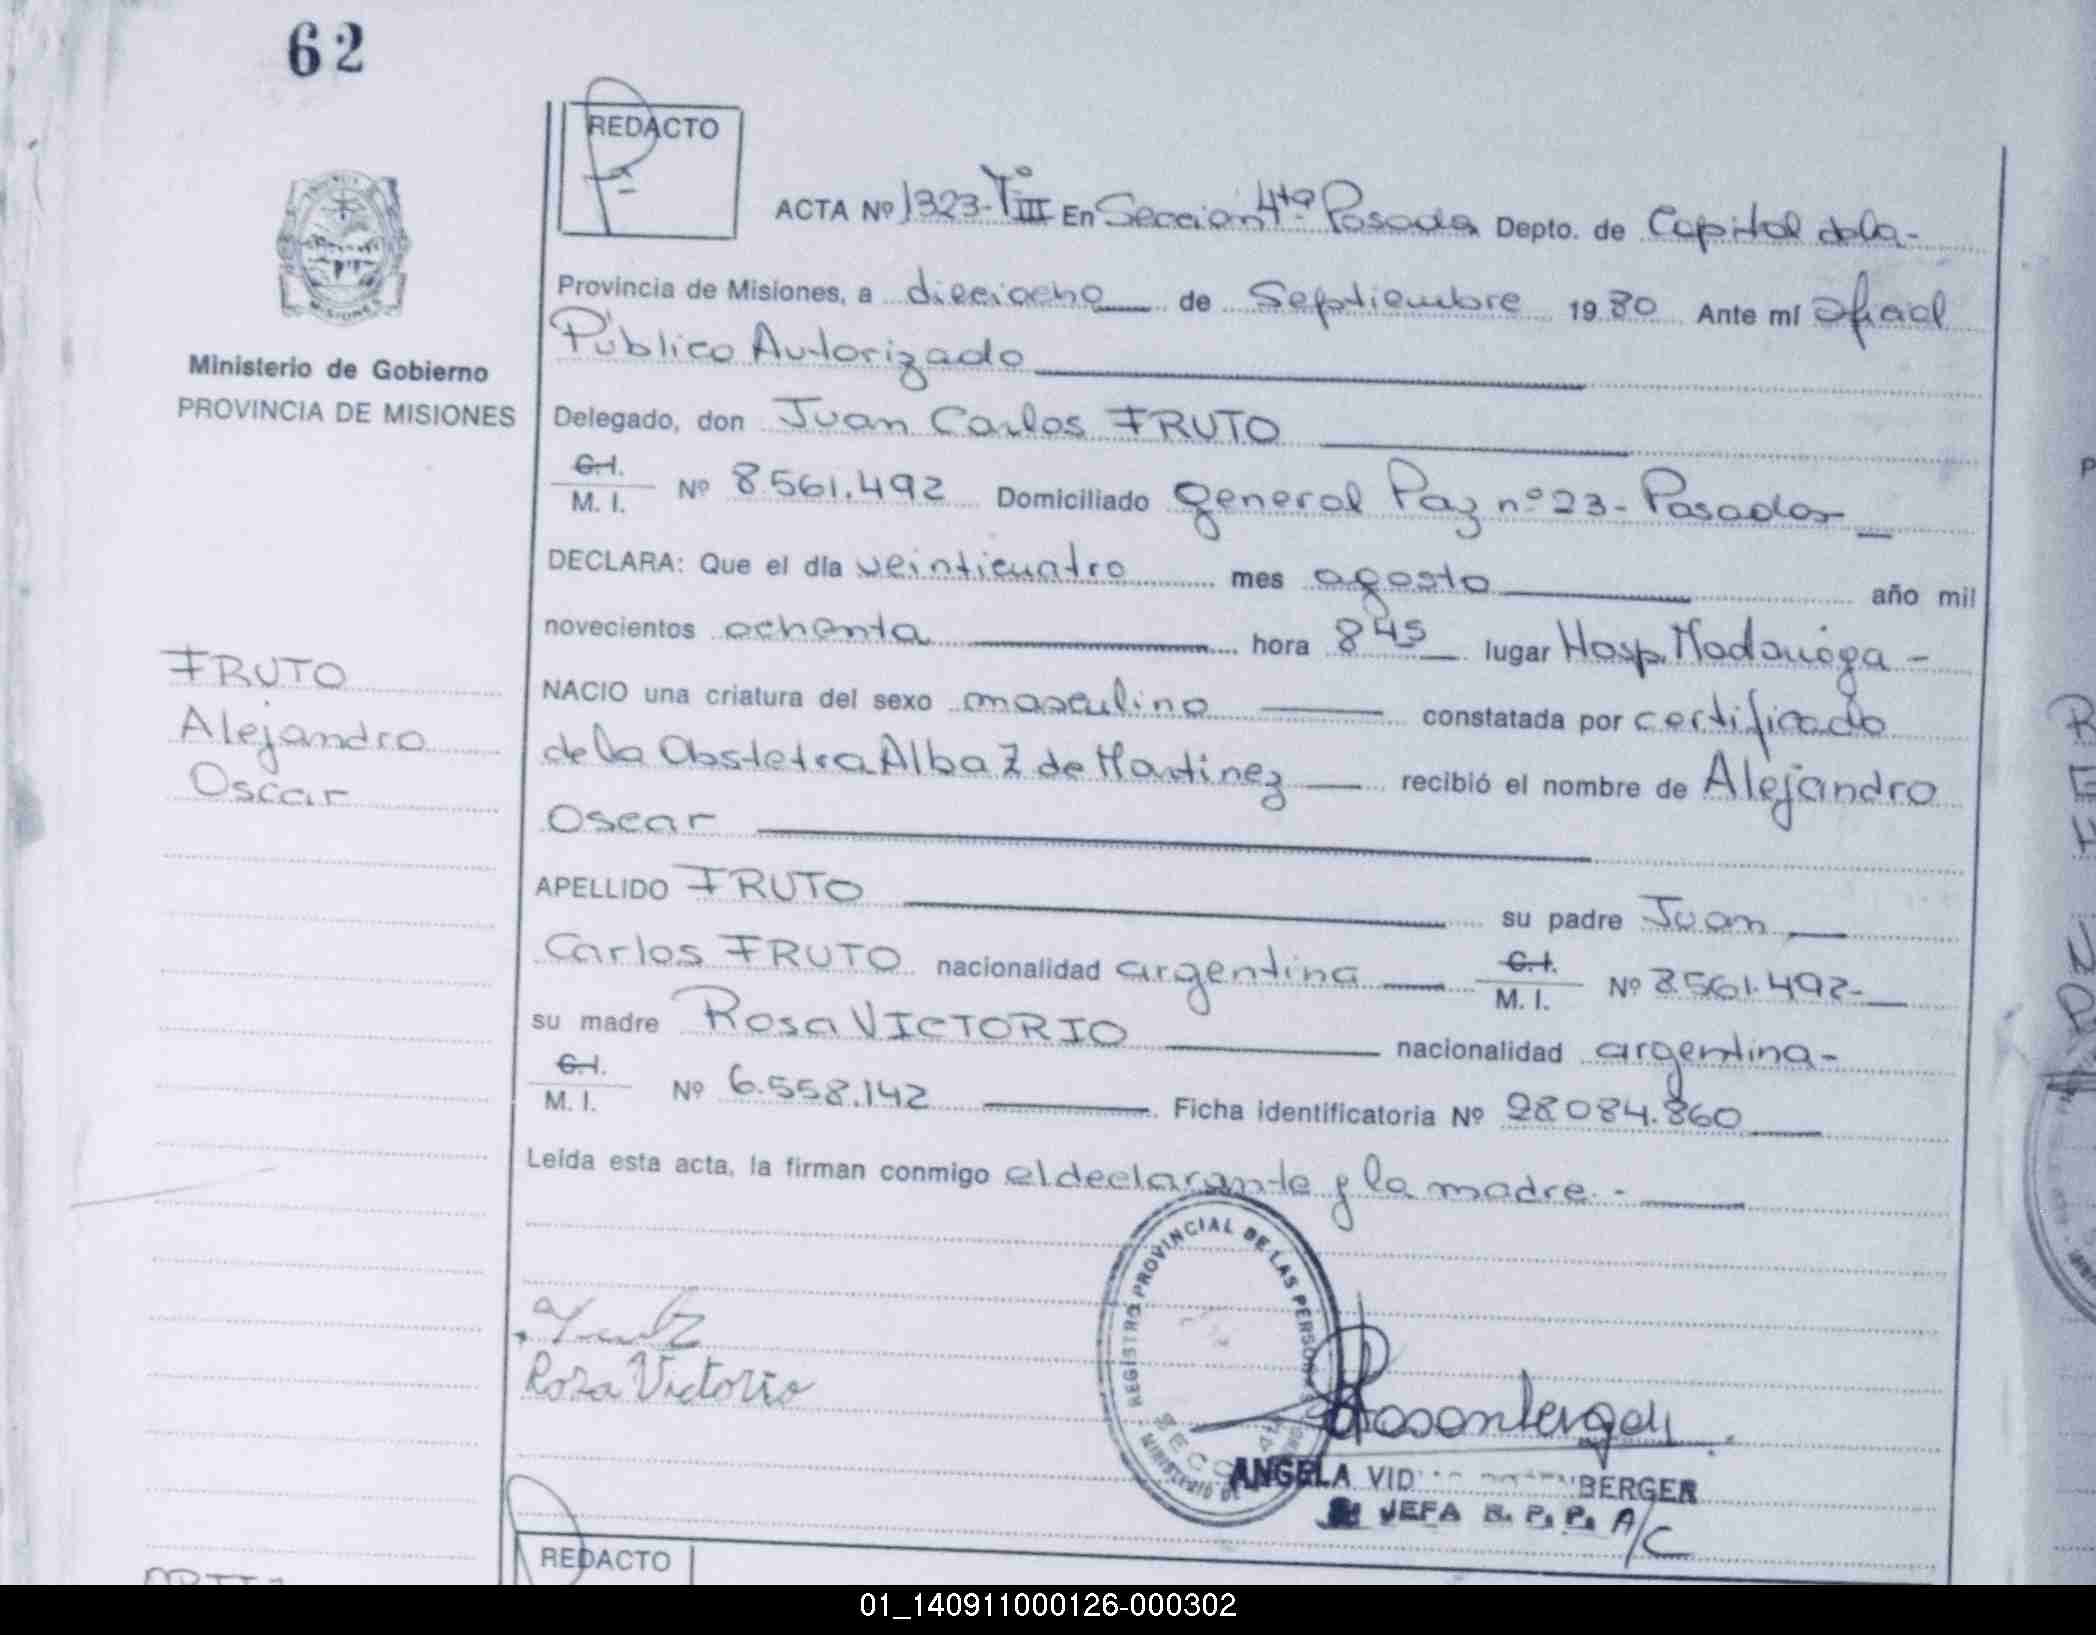 62
REDACTO
ACTA Nº 1323-Tº III En Seccion 4ta Posadas Depto. de Capital de la-
Provincia de Misiones, a dieciocho de Septiembre 1980 Ante mí Oficial
Público Autorizado
Ministerio de Gobierno
PROVINCIA DE MISIONES
Delegado, don Juan Carlos FRUTO
C.I.
M. I. Nº 8.561.492 Domiciliado general Paz nº 23- Posadas
DECLARA: Que el día veinticuatro mes agosto año mil
novecientos ochenta hora 8 45 lugar Hosp. Madariaga -
FRUTO
Alejandro
Oscar
NACIO una criatura del sexo masculino constatada por certificado
de la Obstetra Alba Z de Martinez recibió el nombre de Alejandro
Oscar
APELLIDO FRUTO su padre Juan
Carlos FRUTO nacionalidad argentina C.I.
M. I. Nº 8.561.492-
su madre Rosa VICTORIO nacionalidad argentina-
C.I.
M. I. Nº 6.558.142 Ficha identificatoria Nº 28084.860
Leída esta acta, la firman conmigo el declarante y la madre.-
REGISTRO PROVINCIAL DE LAS PERSONAS
MINISTERIO DE
SECC 4ta
Rosa Victorio
ANGELA VID BERGER
JEFA R. P. P. A/C
REDACTO
01_140911000126-000302